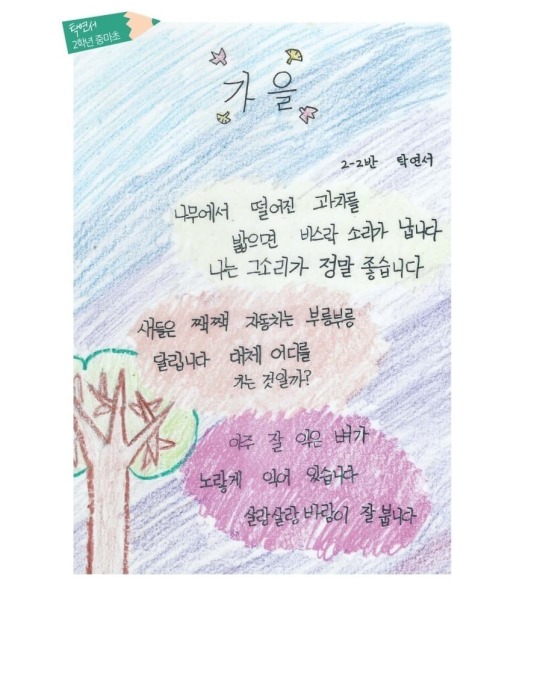 탁연서
2학년 중마초
가을
2-2반 탁연서
나무에서 떨어진 과자를
밟으면 바스락 소리가 납니다
나는 그소리가 정말 좋습니다
새들은 짹짹 자동차는 부릉부릉
달립니다 대체 어디를
가는 것일까?
아주 잘 익은 벼가
노랗게 익어 있습니다
살랑살랑 바람이 잘 붑니다